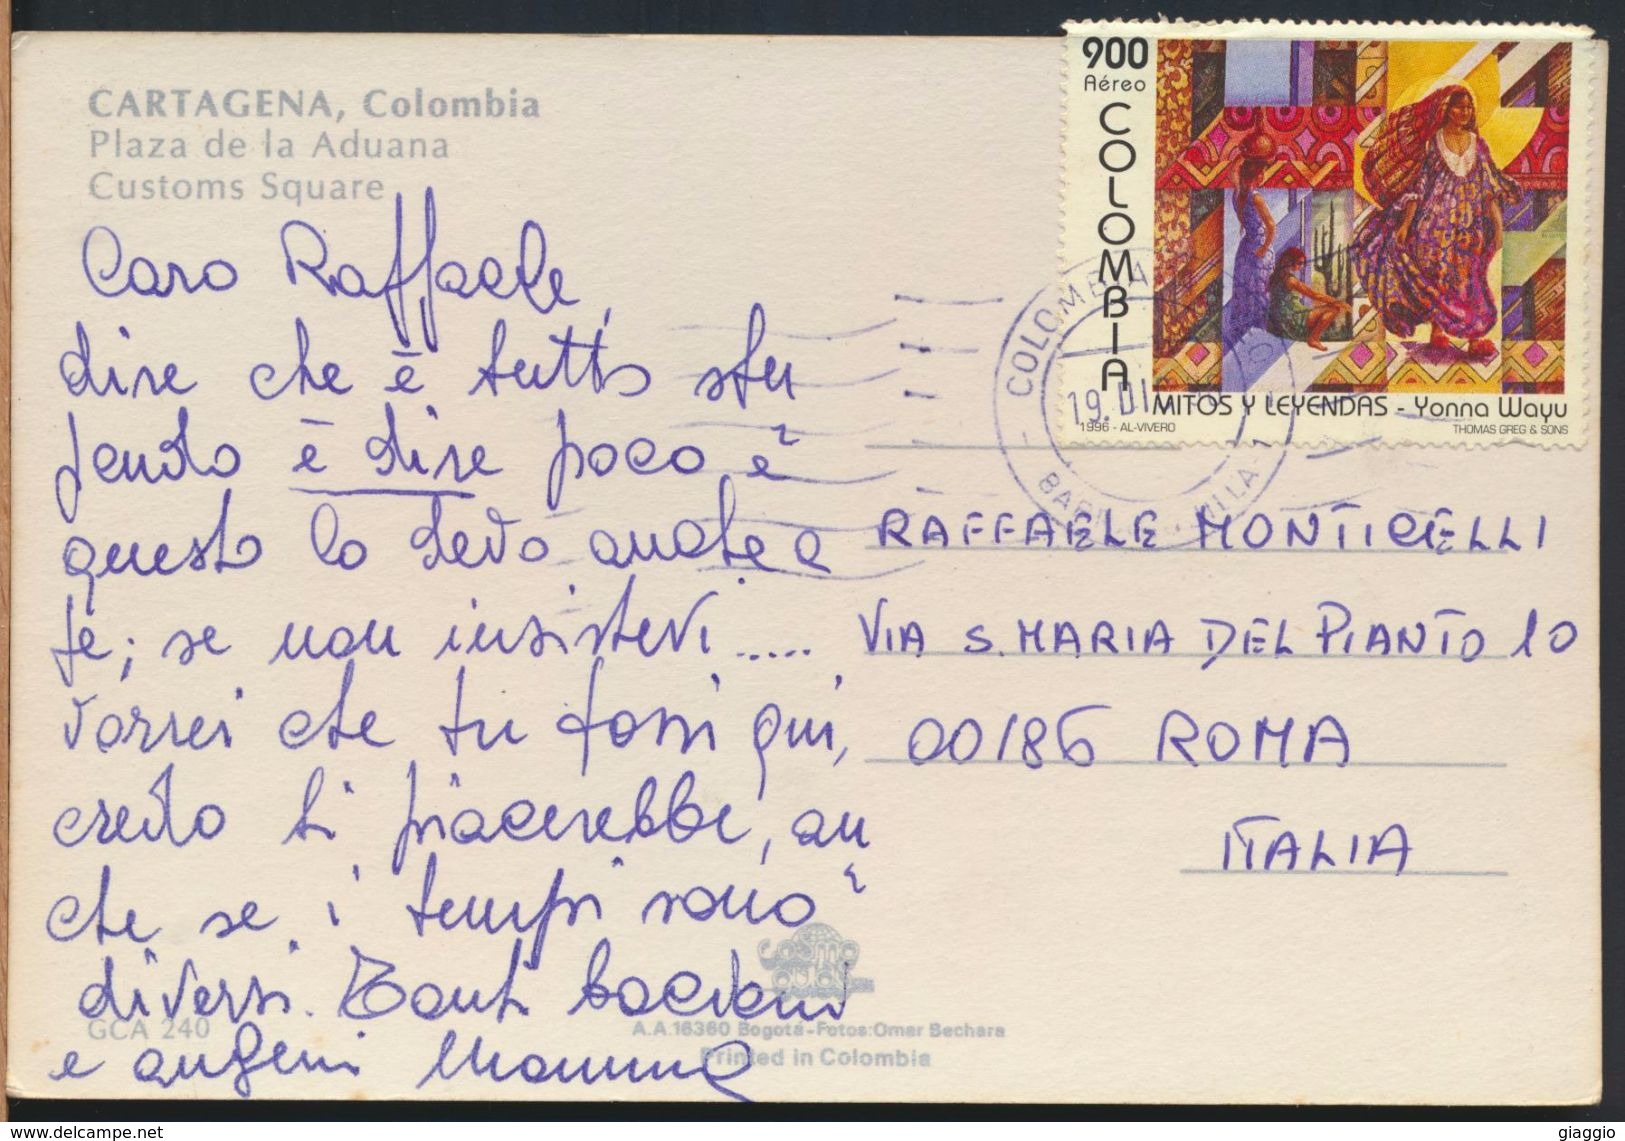 CARTAGENA, Colombia
Plaza de la Aduana
Customs Square
Caro Raffaele,
dire che è tutto stu
pendo è dire poco e
questo lo devo anche a
te; se non insistevi.....
vorrei che tu fossi qui,
credo ti piacerebbe, an
che se i tempi sono
diversi. Tanti bacioni
e auguri Mamma
GCA 240
A.A.16360 Bogotá-Fotos:Omar Bechara
Printed in Colombia
900
Aéreo
COLOMBIA
MITOS Y LEYENDAS - Yonna Wayu
1996 - AL-VIVERO
THOMAS GREG & SONS
COLOMBIA
19. DI
RAFFAELE MONTICELLI
VIA S. MARIA DEL PIANTO 10
00186 ROMA
ITALIA
https://www.delcampe.net
giaggio